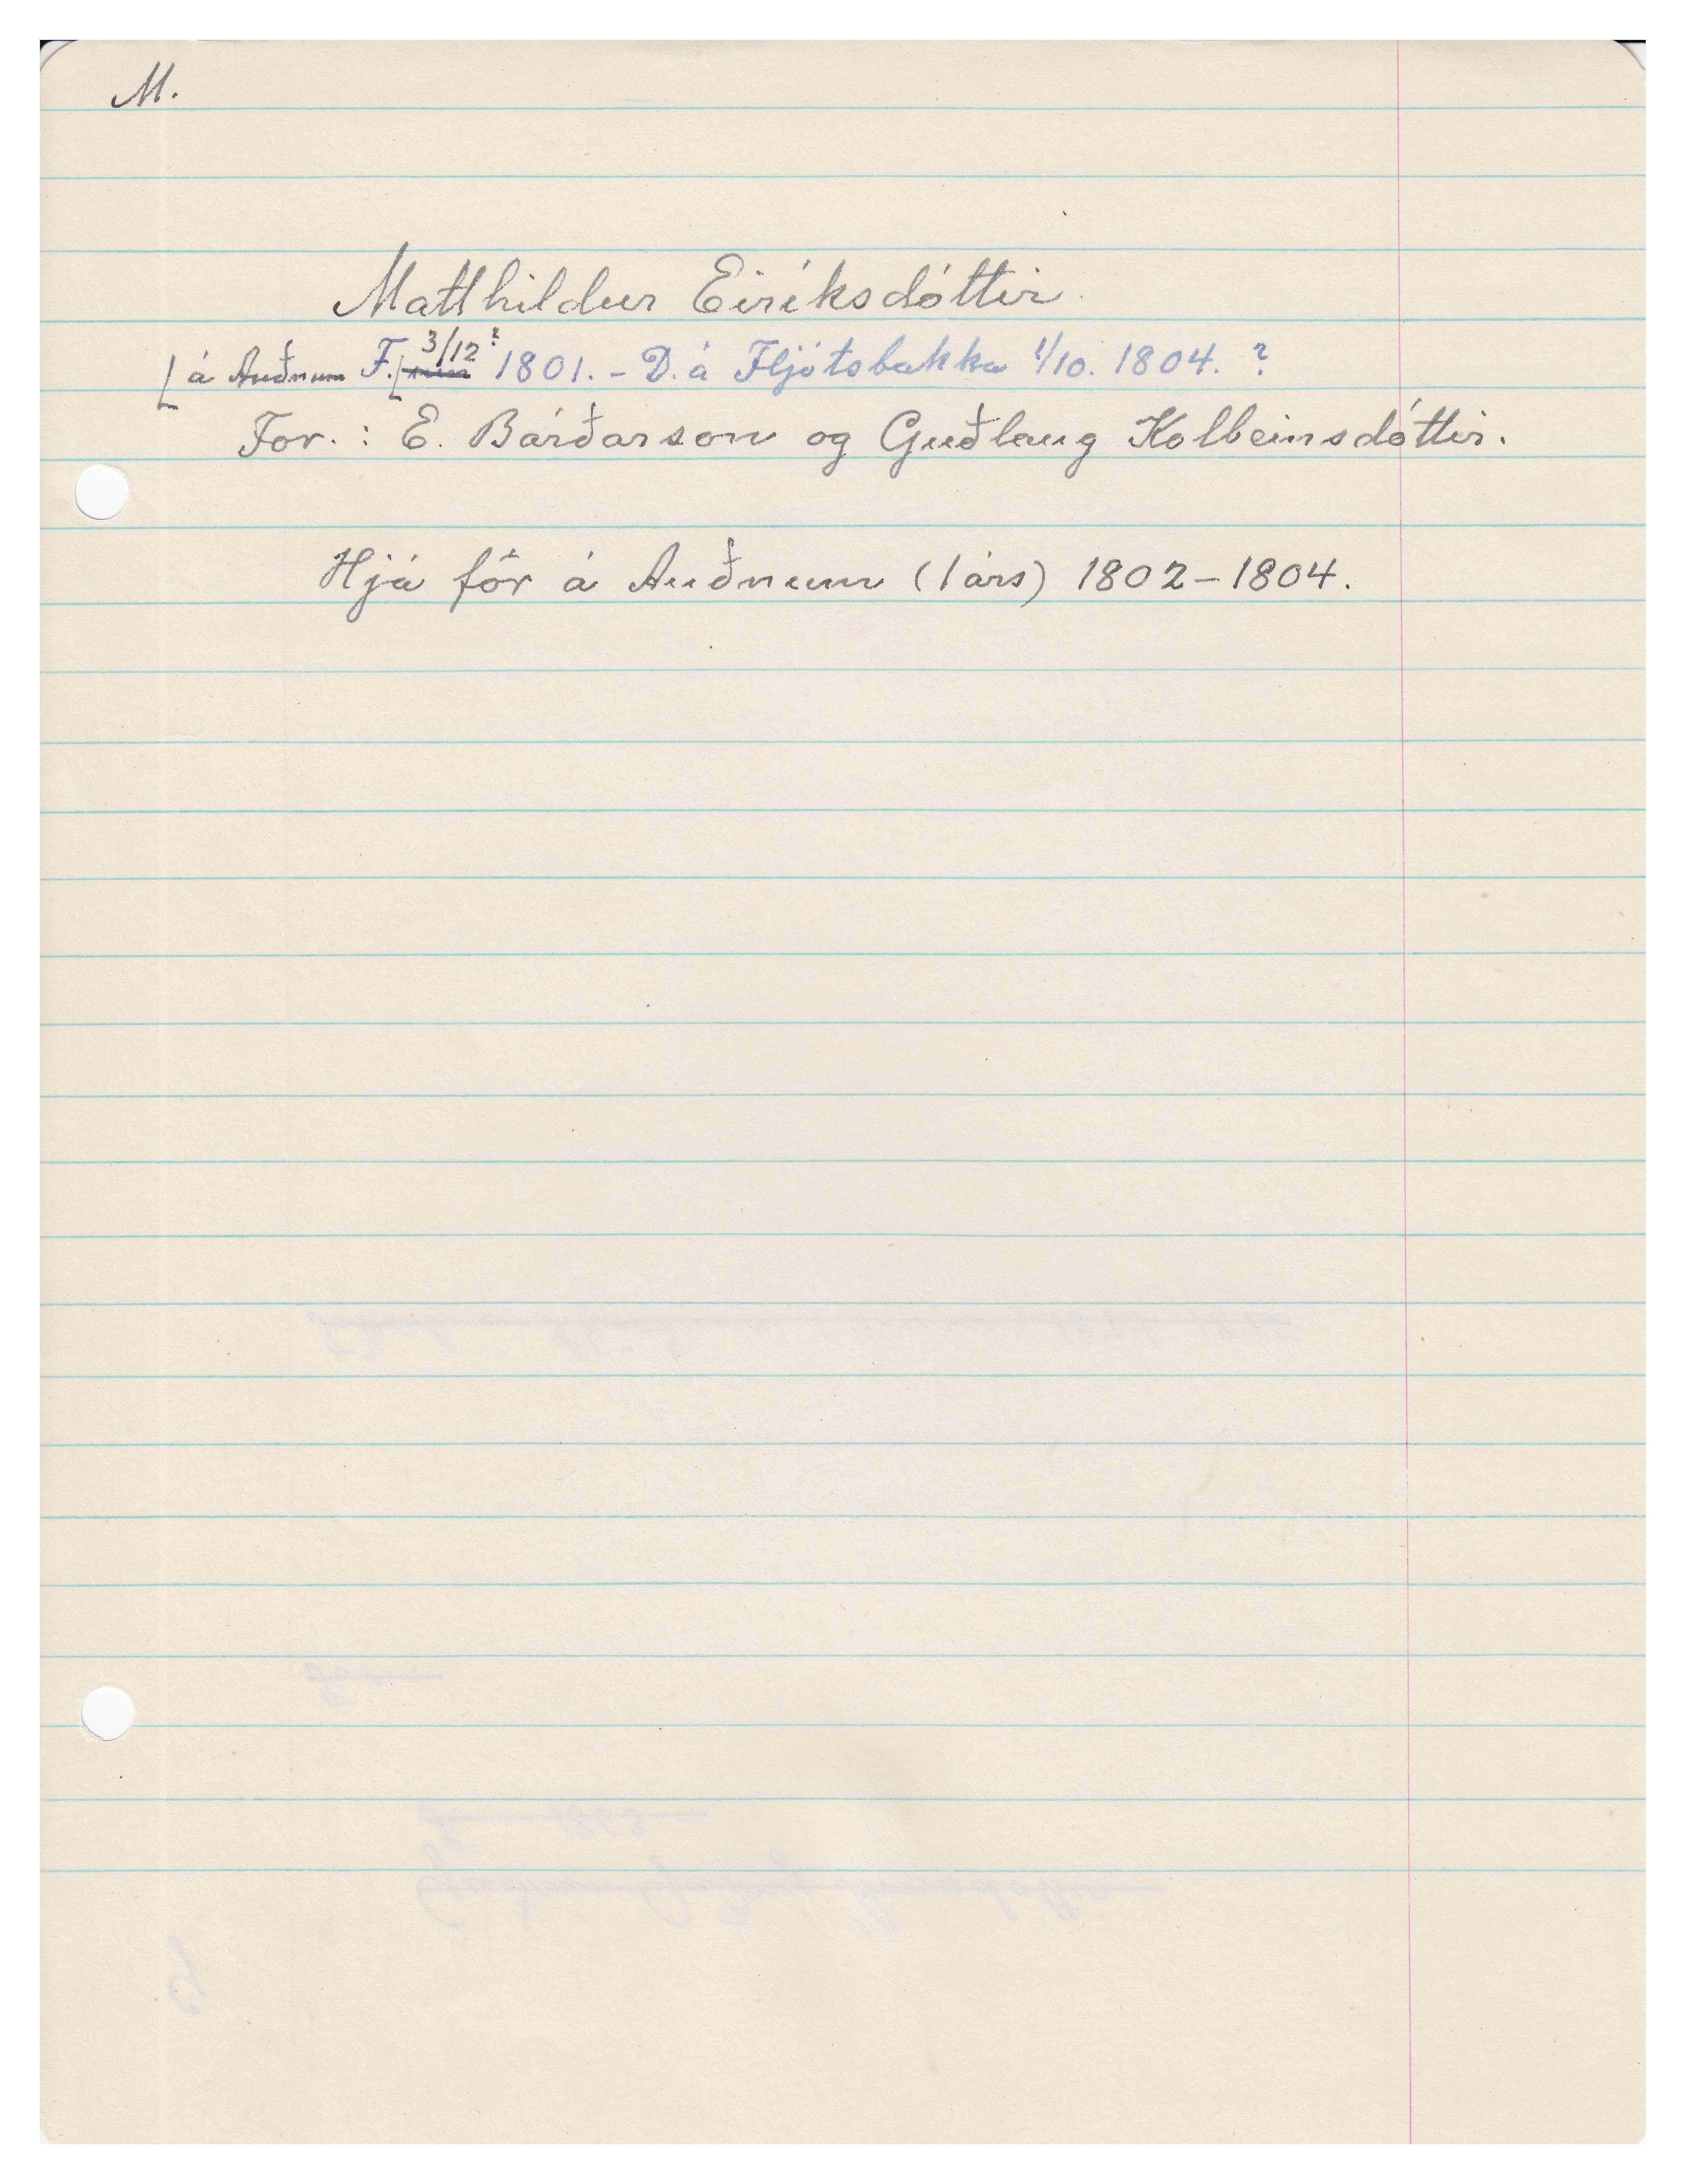 M.
Matthildur Eiríksdóttir.
⌊á Auðnum F.⌊3/12? 1801. - D. á Fljótsbakka 1/10. 1804. ?
For.: E. Bárðarson og Guðlaug Kolbeinsdóttir.
Hjá for á Auðnum (1 árs) 1802-1804.